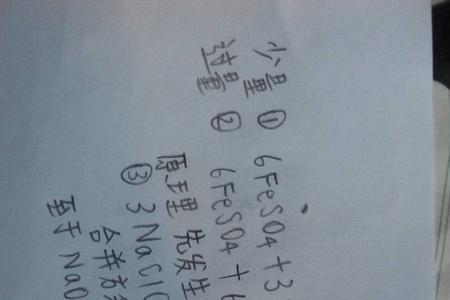 少量 ① 6FeSO4 + 3
过量 ② 6FeSO4 + 6
原理 先发生
③ 3NaClO
合并
至于 NaO